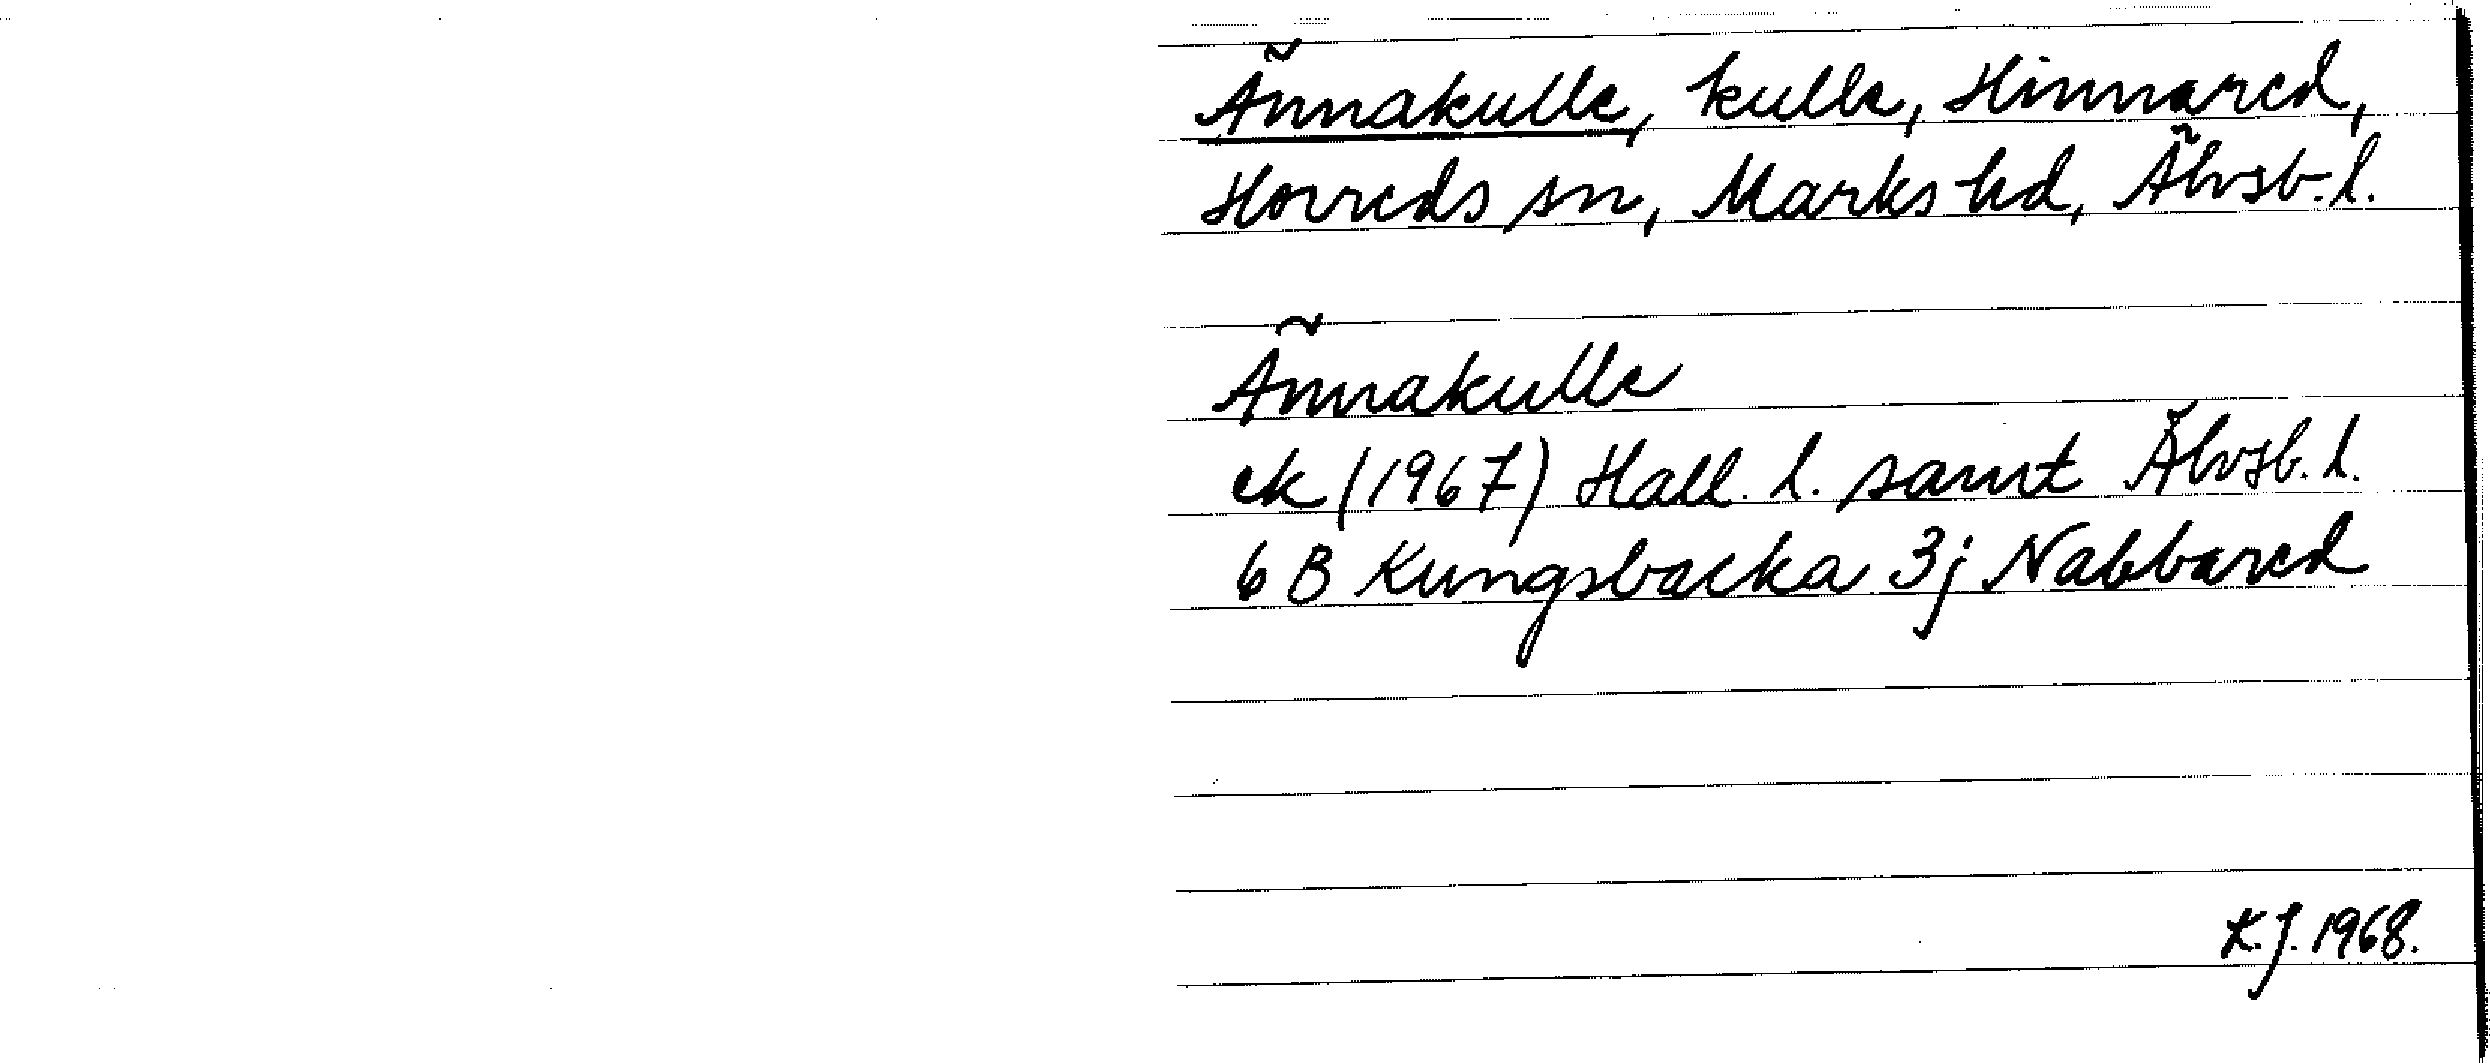 Ännakulle, kulle, Hinnared,
Horreds sn, Marks hd, Älvsb. l.
Ännakulle
ek (1967) Hall. l. samt Älvsb. l.
6 B Kungsbacka 3j Nabbared
K.J. 1968.